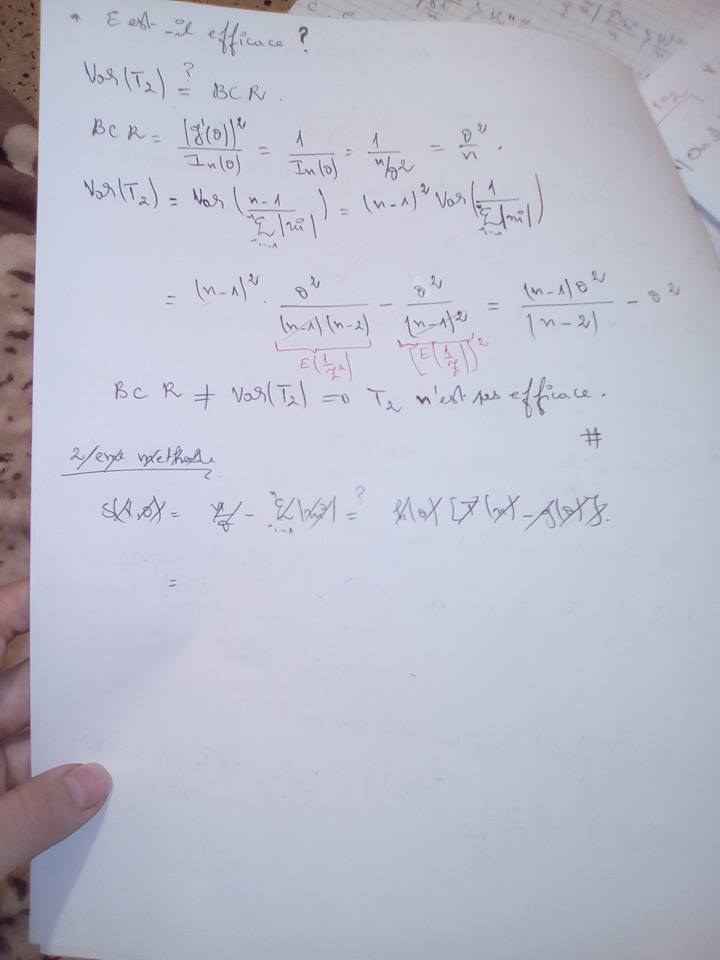 * E est-il efficace ?
Var(T₂) =? BCR.
BCR = (g'(θ))² / In(θ) = 1 / In(θ) = 1 / n/θ² = θ² / n.
Var(T₂) = Var( n-1 / Σⁿᵢ₌₁ |xi| ) = (n-1)² Var( 1 / Σⁿᵢ₌₁ |xi| )
= (n-1)² . θ² / (n-1)(n-2) - θ² / (n-1)² = (n-1)θ² / (n-2) - θ²
E(1/Z²) [E(1/Z)]²
BCR ≠ Var(T₂) ⇒ T₂ n'est pas efficace.
#
2/ème méthode
S(X,θ) = n/θ - Σⁿᵢ₌₁ |xi| =? A(θ) [T(x) - g(θ)].
=